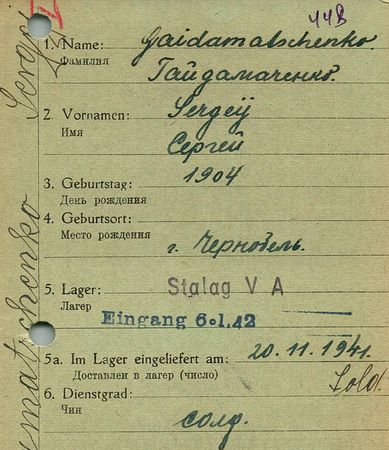 448
1. Name: Gaidamatschenko.
Фамилия
Гайдамаченко.
2. Vornamen: Sergeÿ
Имя
Сергей
3. Geburtstag: 1904
День рождения
4. Geburtsort:
Место рождения
г. Чернобель.
5. Lager: Stalag V A
Лагер
Eingang 6.1.42
5a. Im Lager eingeliefert am: 20.11.1941.
Доставлен в лагер (число)
6. Dienstgrad: Sold.
Чин
солд.
matschenko Serge